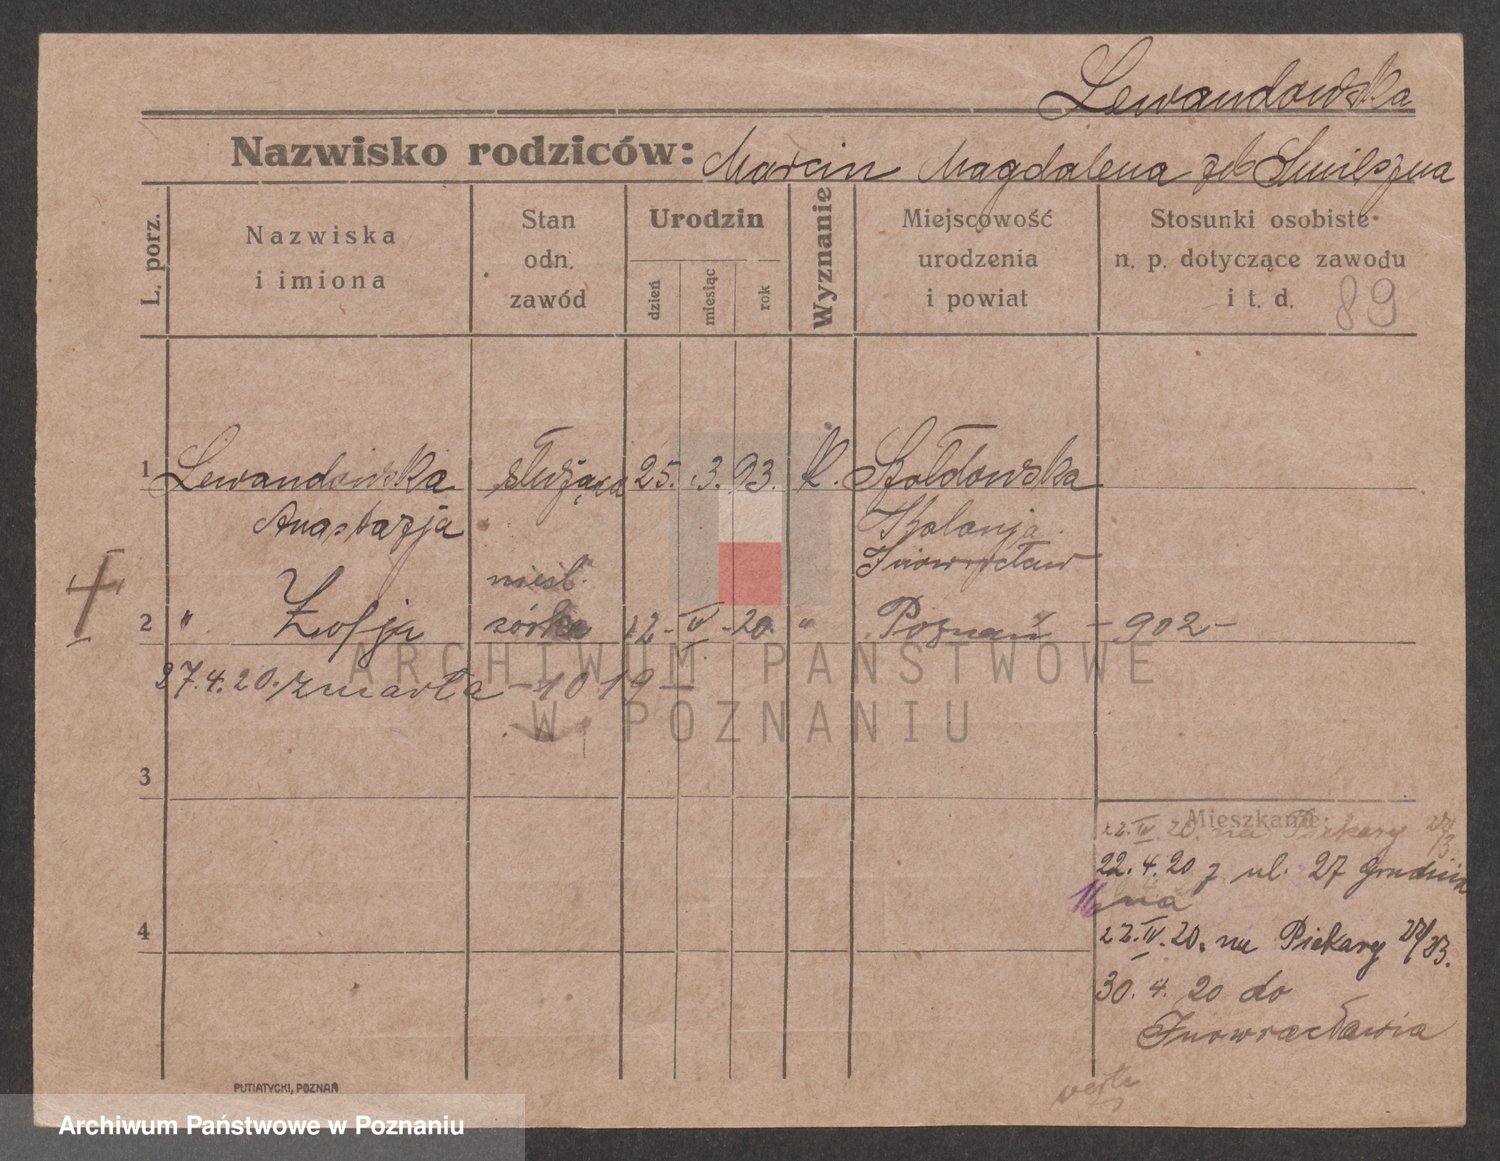 Lewandowska
Nazwisko rodziców: Marcin Magdalena
L. porz.
Nazwiska
i imiona
Stan
odn.
zawód
Urodzin
dzień
miesiąc
rok
Wyznanie
Miejscowość
urodzenia
i powiat
Stosunki osobiste
n. p. dotyczące zawodu
i t. d. 89
1 Lewandowska służąca 25. 3. 93. k. Szołdowska
Anastazja Kolonja
Inowrocław
nieśl.
2 " Zofja córka 12 - IV - 20. " Poznań - 902 -
27.4.20. zmarła - 1019 -
ARCHIWUM PAŃSTWOWE
W POZNANIU
3
Mieszkanie:
22. IV. 20. na Piekary
22. 4. 20 z ul. 27 Grudnia
16 na
22. IV. 20. na Piekary
4
30. 4. 20 do
Inowrocławia
PUTIATYCKI, POZNAŃ
Archiwum Państwowe w Poznaniu